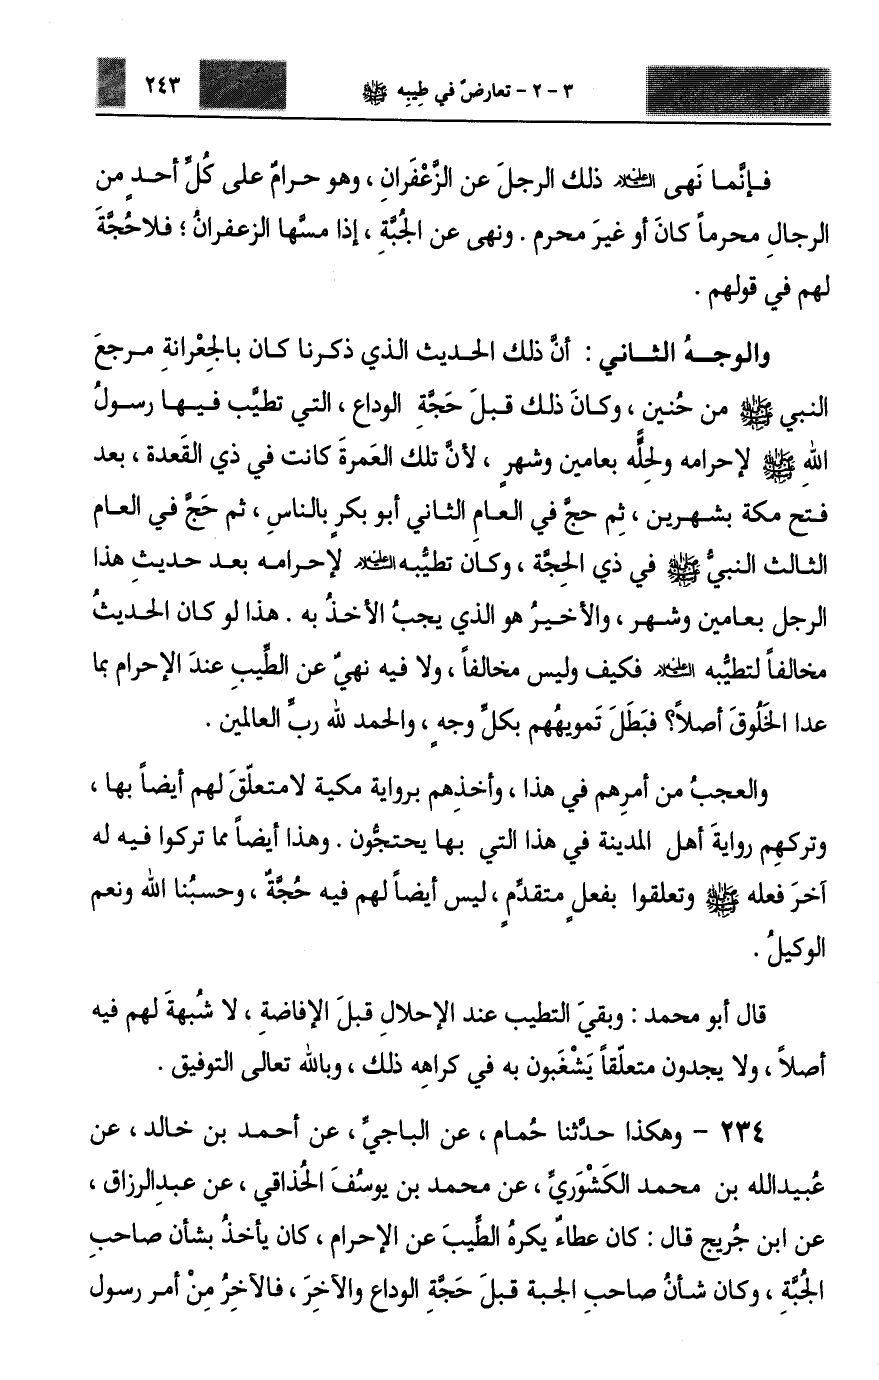 ٣ - ٢ - تعارضٌ في طِيبِه ﷺ ٢٤٣
فإنَّما نَهى عليه السلام ذلك الرجلَ عن الزَّعْفَرانِ ، وهو حرامٌ على كُلِّ أحدٍ من
الرجالِ محرماً كانَ أو غيرَ محرم . ونهى عن الجُبَّةِ ، إذا مسَّها الزعفرانُ ؛ فلاحُجَّةَ
لهم في قولهم .
والوجهُ الثاني : أنَّ ذلك الحديث الذي ذكرنا كان بالجِعْرانةِ مرجعَ
النبي ﷺ من حُنينٍ ، وكانَ ذلك قبلَ حَجَّةِ الوداع ، التي تطيَّب فيها رسولُ
اللهِ ﷺ لإحرامه ولحِلِّه بعامين وشهرٍ ، لأنَّ تلك العَمرةَ كانت في ذي القَعدة ، بعد
فتح مكة بشهرين ، ثم حجَّ في العامِ الثاني أبو بكرٍ بالناسِ ، ثم حَجَّ في العام
الثالث النبيُّ ﷺ في ذي الحِجَّة ، وكان تطيُّبه عليه السلام لإحرامه بعد حديثِ هذا
الرجل بعامين وشهر ، والأخيرُ هو الذي يجبُ الأخذُ به . هذا لو كان الحديثُ
مخالفاً لتطيُّبه عليه السلام فكيف وليس مخالفاً ، ولا فيه نهيٌ عن الطِّيبِ عندَ الإحرام بما
عدا الخَلُوقَ أصلاً؟ فبَطَلَ تَمويهُهم بكلِّ وجهٍ ، والحمد لله ربِّ العالمين .
والعجبُ من أمرِهم في هذا ، وأخذِهم برواية مكية لامتعلّقَ لهم أيضاً بها ،
وتركهِم روايةَ أهل المدينة في هذا التي بها يحتجُّون . وهذا أيضاً مما تركوا فيه له
آخرَ فعله ﷺ وتعلقوا بفعلٍ متقدِّمٍ ، ليس أيضاً لهم فيه حُجَّةٌ ، وحسبُنا الله ونعم
الوكيلُ .
قال أبو محمد : وبقيَ التطيب عند الإحلالِ قبلَ الإفاضةِ ، لا شُبهةَ لهم فيه
أصلاً ، ولا يجدون متعلّقاً يَشْغَبون به في كراهِه ذلك ، وبالله تعالى التوفيق .
٢٣٤ - وهكذا حدَّثنا حُمام ، عن الباجيِّ ، عن أحمد بن خالد ، عن
عُبيدالله بن محمد الكَشْوَريِّ ، عن محمد بن يوسُفَ الحُذاقي ، عن عبدِالرزاق ،
عن ابن جُريج قال : كان عطاءٌ يكرهُ الطِّيبَ عن الإحرام ، كان يأخذُ بشأن صاحبِ
الجُبَّةِ ، وكان شأنُ صاحبِ الجبة قبلَ حَجَّةِ الوداع والآخِرَ ، فالآخِرُ مِنْ أمر رسول